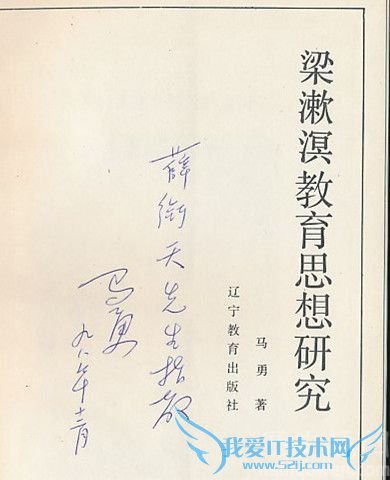 梁漱溟教育思想研究
马勇著
辽宁教育出版社
薛衔天先生指正
马勇
九八年十二月
我爱IT技术网
www.52ij.com